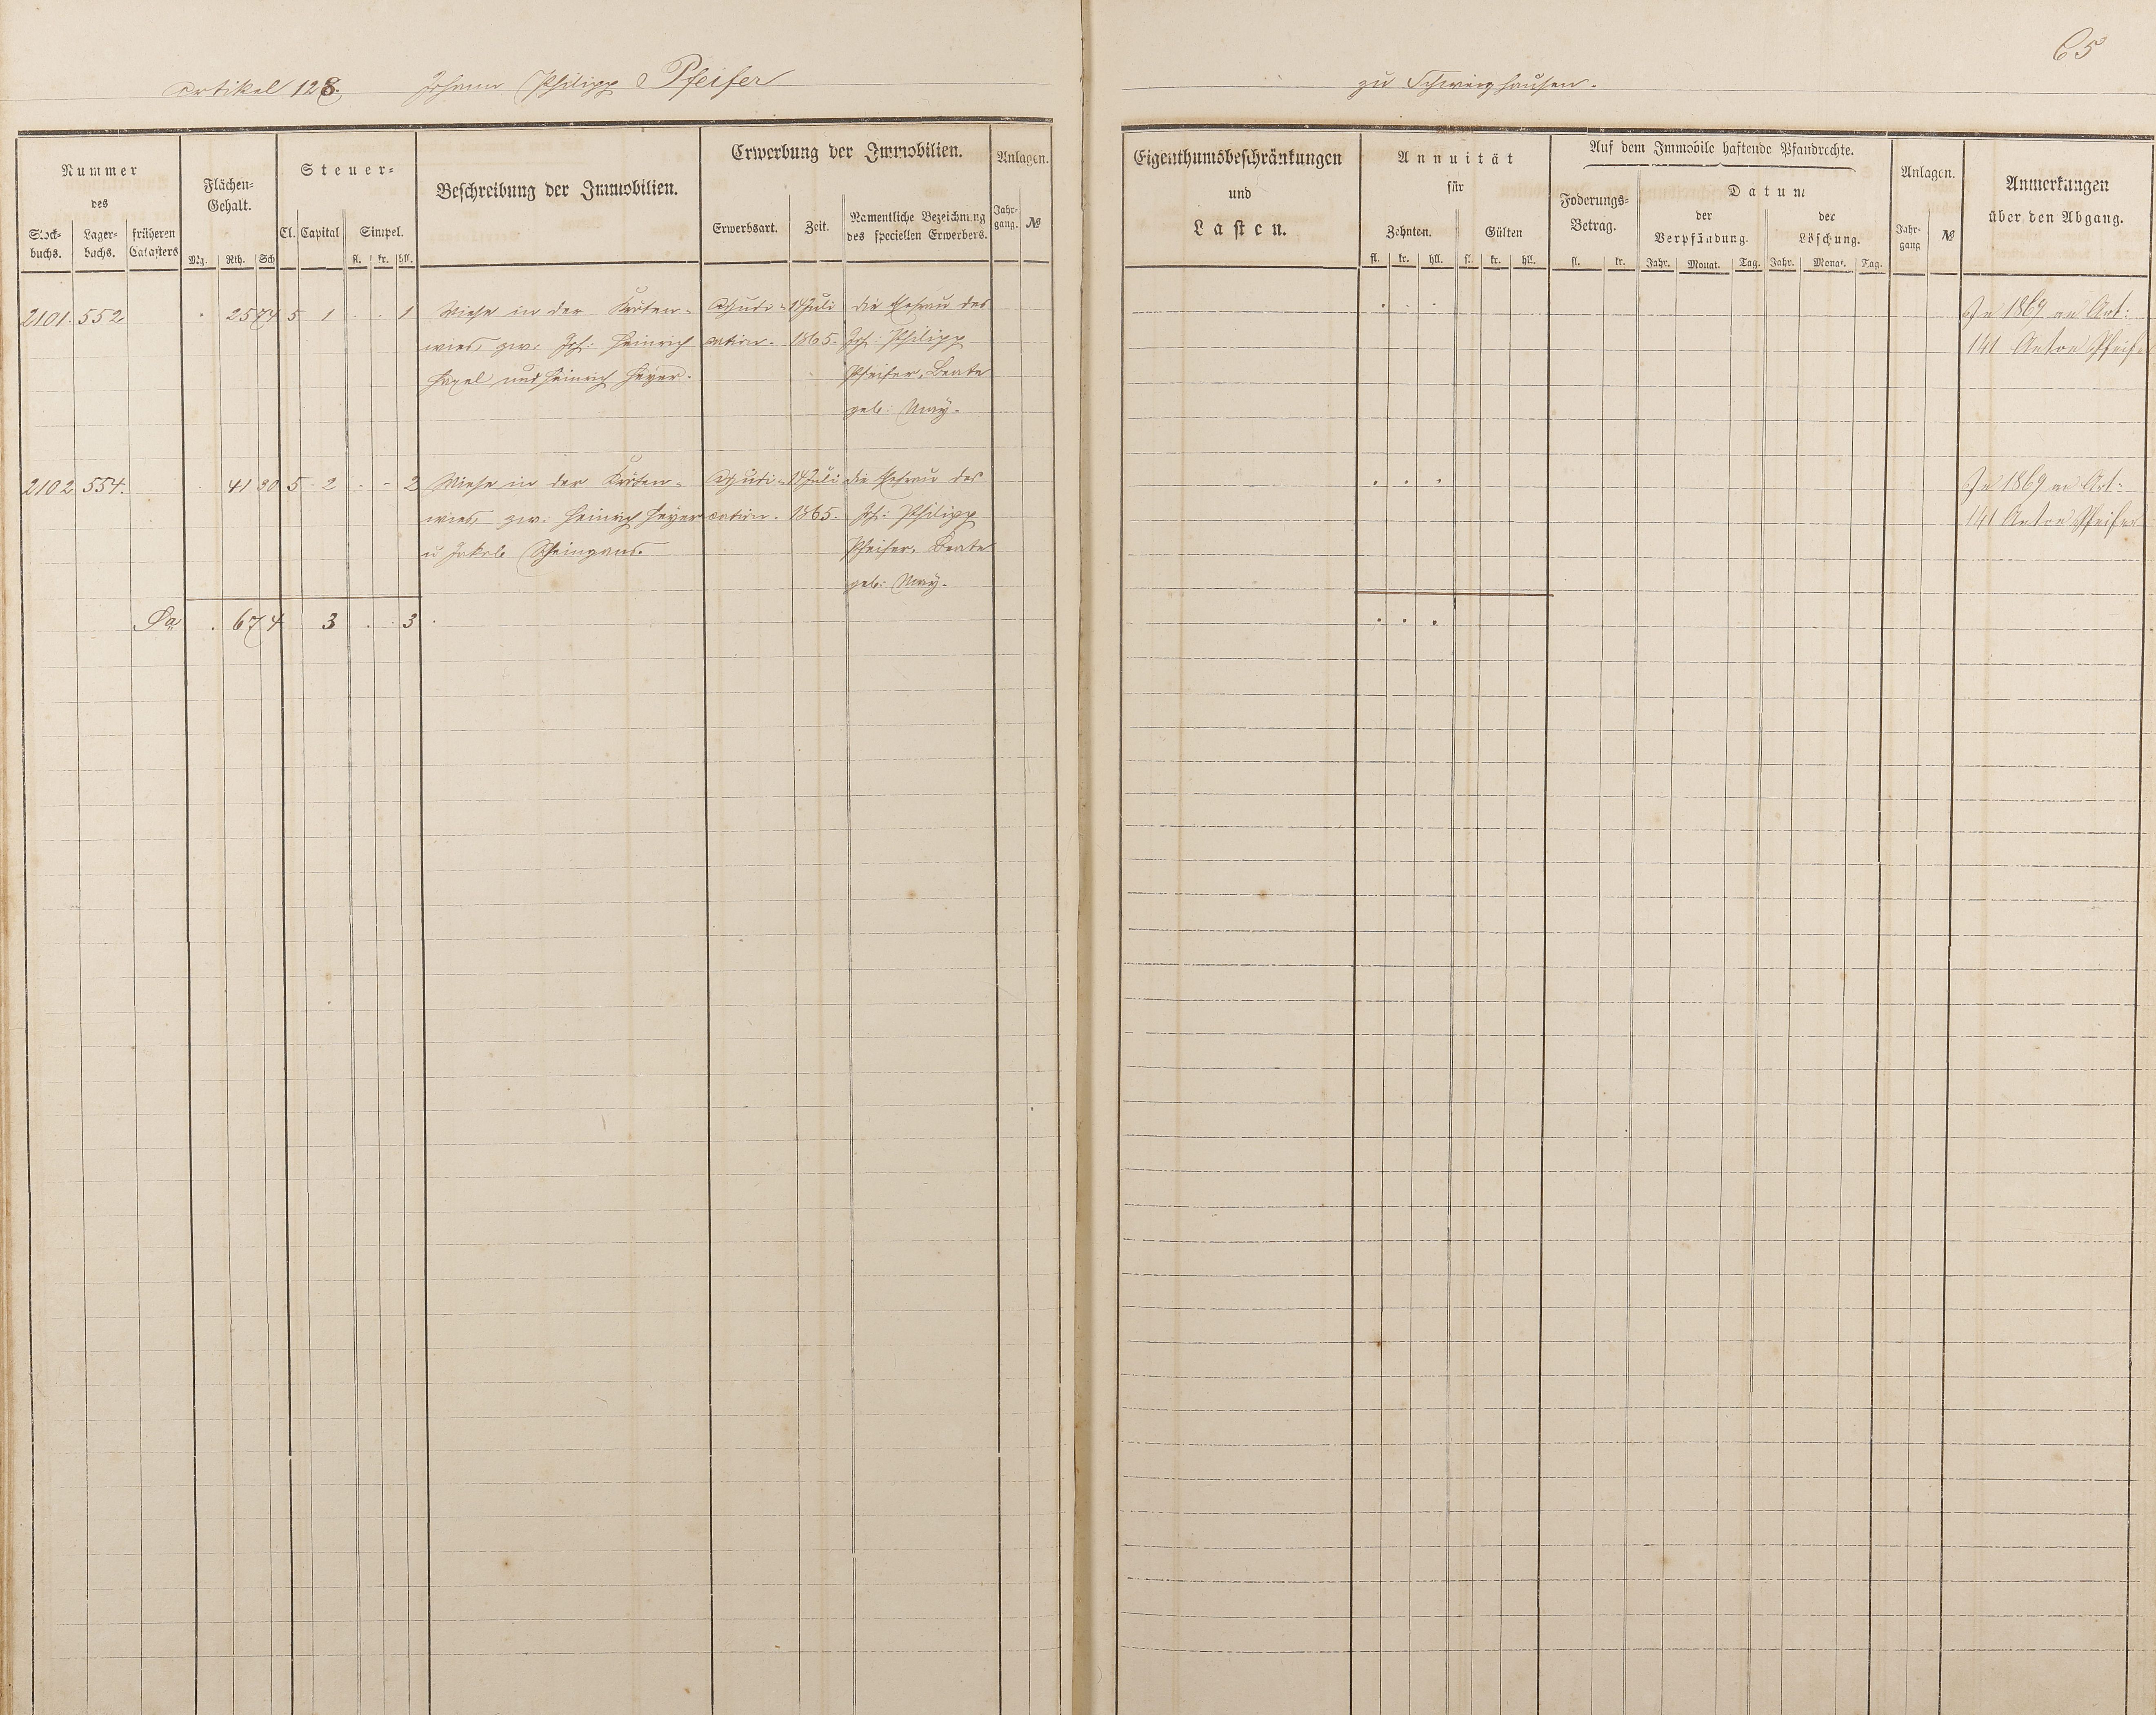 65
Artikel 128. Johann Philipp Pfeifer
zu Schweighausen.
Nummer
des
Stock-
buchs.
Lager-
buchs.
früheren
Catasters
Flächen-
Gehalt.
Mg. Rth. Sch
Steuer-
Cl. Capital Simpel.
fl. kr. hll.
Beschreibung der Immobilien.
Erwerbung der Immobilien.
Erwerbsart. Zeit.
Namentliche Bezeichnung
des speciellen Erwerbers.
Anlagen.
Jahr-
gang. №
Eigenthumsbeschränkungen
und
Lasten.
Annuität
für
Zehnten. Gülten
fl. kr. hll. fl. kr. hll.
Auf dem Immobile haftende Pfandrechte.
Foderungs-
Betrag.
fl. kr.
Datum
der
Verpfändung.
der
Löschung.
Jahr. Monat. Tag. Jahr. Monat. Tag.
Anlagen.
Jahr-
gang №
Anmerkungen
über den Abgang.
2101. 552 . 25 74 5 1 . . 1 Wiese in der Kröten- Adjudi- 14 Juli die Ehefrau des . . . In 1869 an Art:
wies, zw: Joh: Heinrich cation. 1865. Joh: Philipp 141 Anton Pfeifer
und Heinrich Heyer. Pfeifer, Beate
geb: May.
2102. 554. . 41 30 5 2 . . 2 Wiese in der Kröten- Adjudi- 14 Juli die Ehefrau des . . . In 1869 an Art:
wies, zw: Heinrich Heyer cation. 1865. Joh: Philipp 141 Anton Pfeifer
u Jakob Pfeifer, Beate
geb: May.
Sa . 67 4 3 . . 3 . . . .